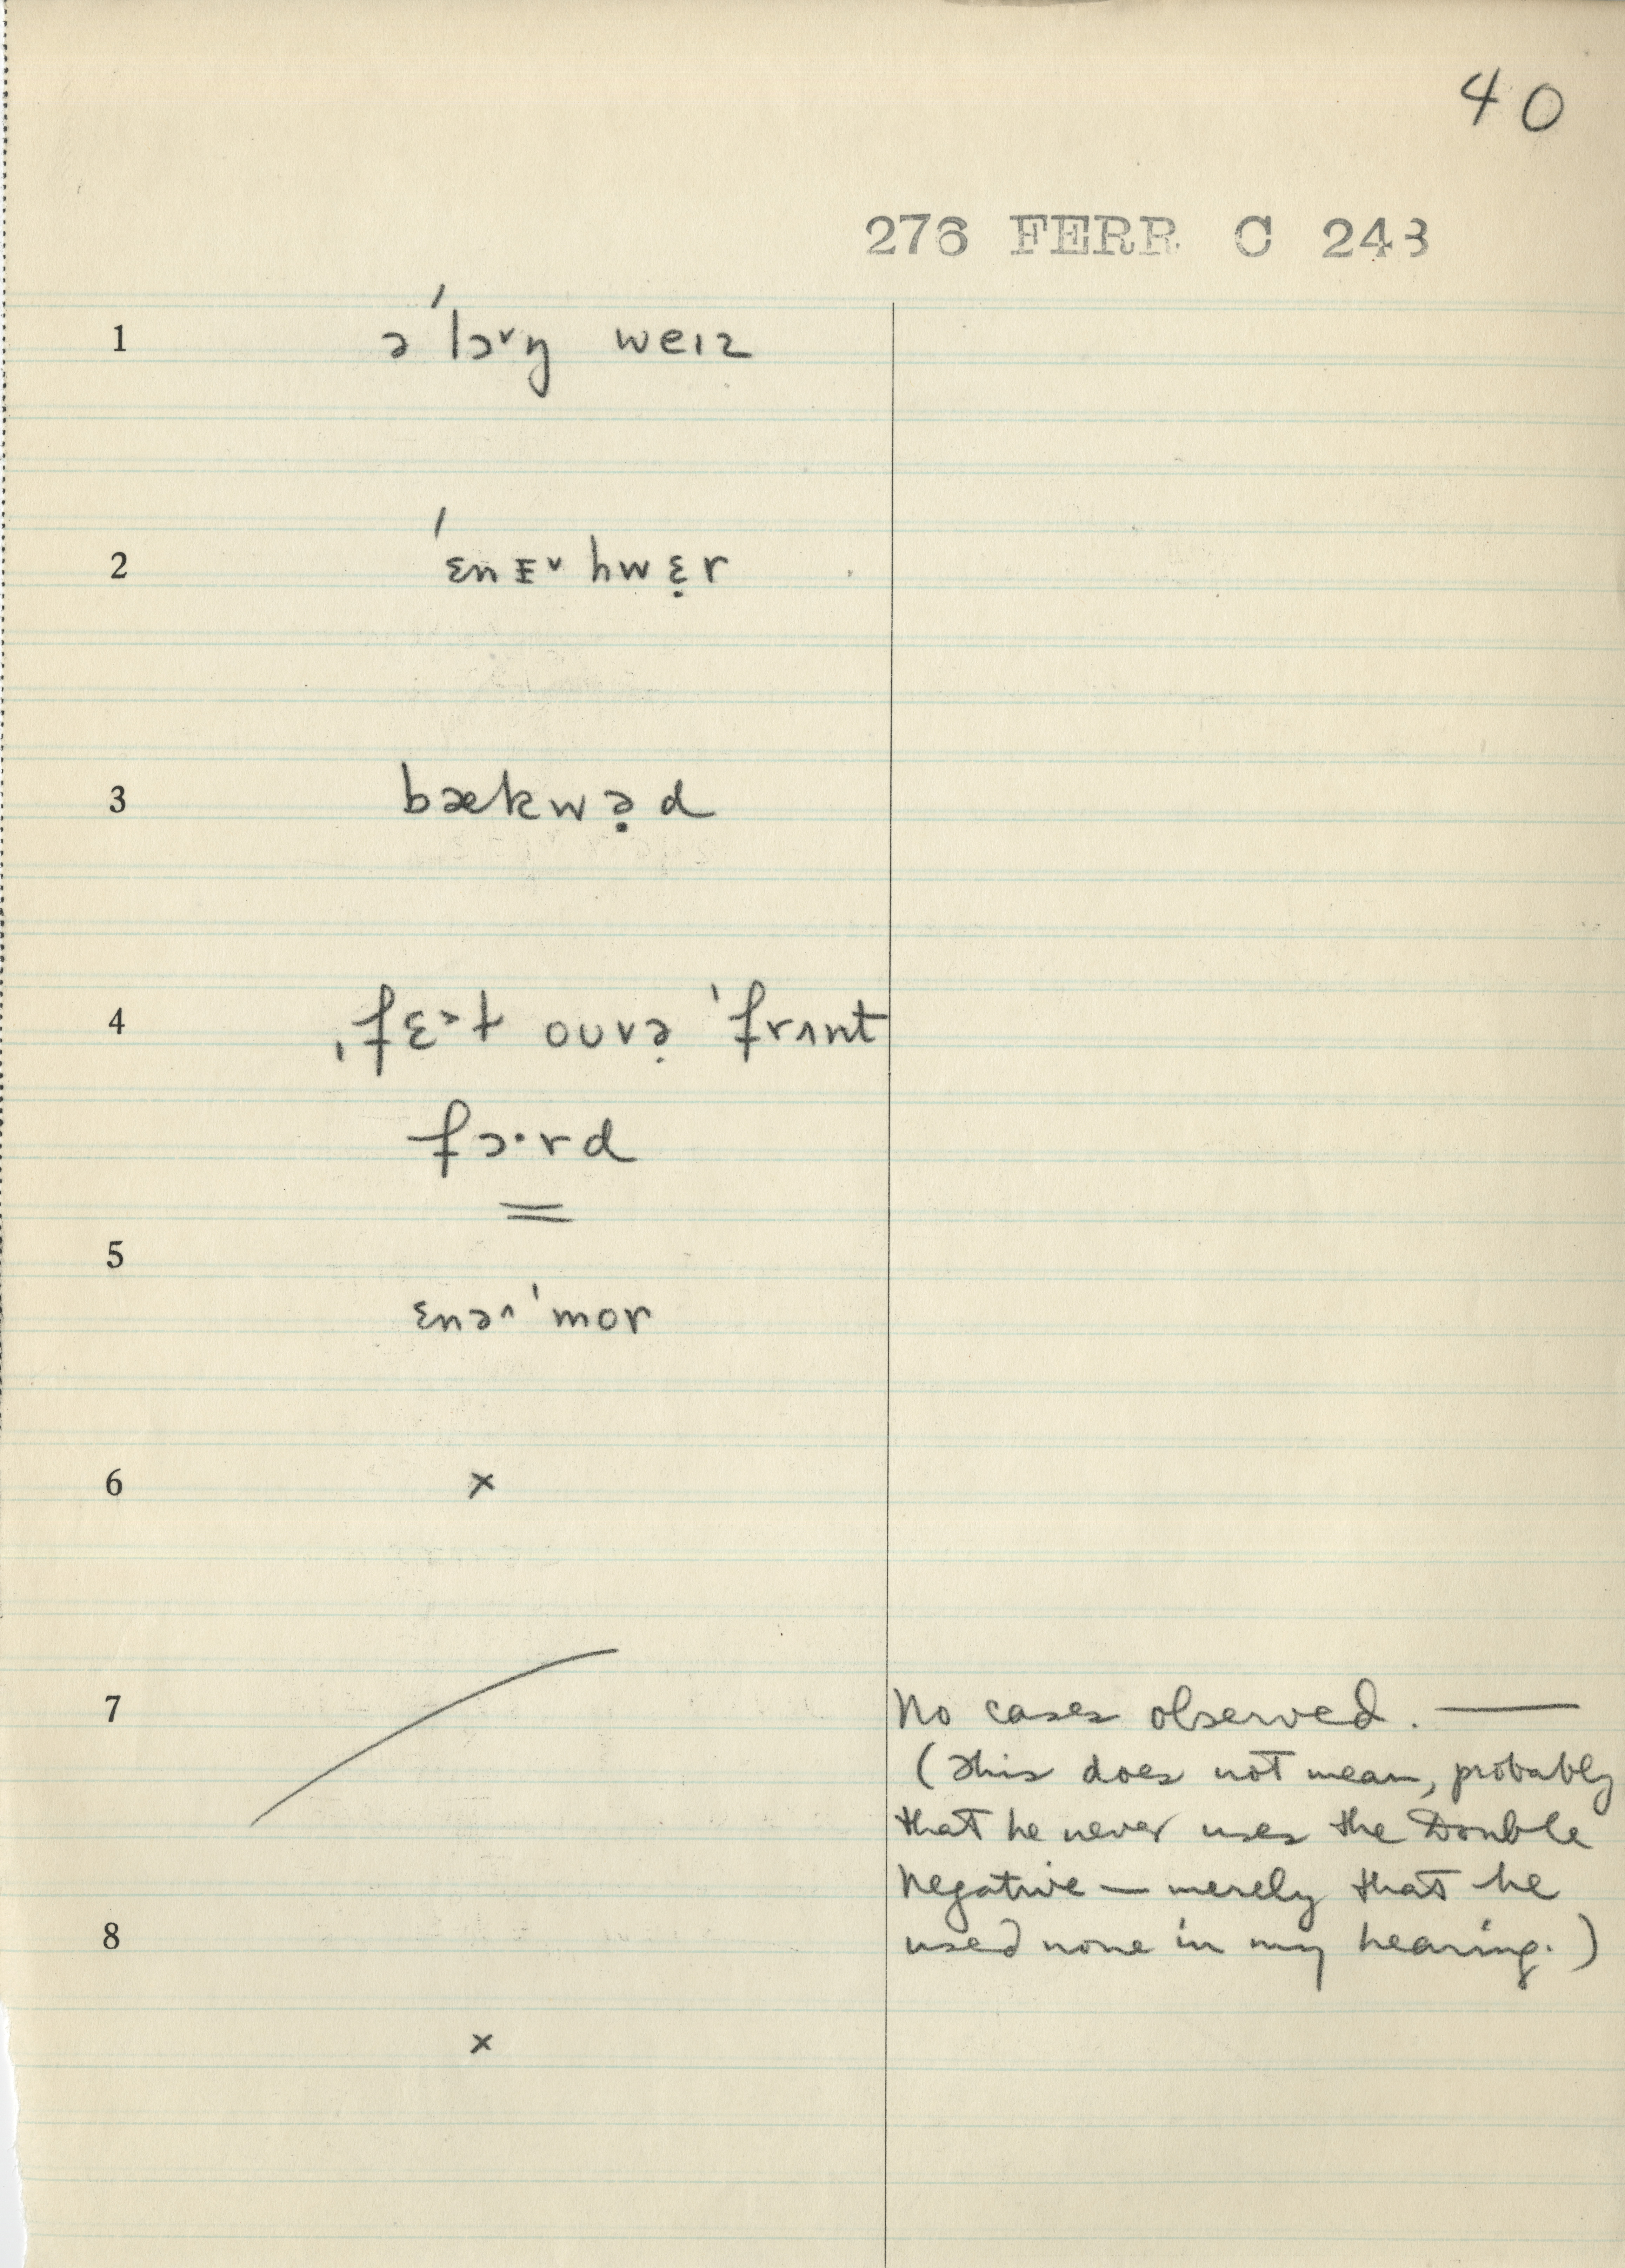 40
276 FERR C 243
1 ə ˈlɔ˅ŋ weɪz
2 ˈɛnɪ˅hwɛ̣r
3 bækwə̣d
4 ˌfɛ˃t ouvə̣ ˈfrʌnt
fɔ·rd
=
5
ɛnə˄ ˈmor
6 ×
7 No cases observed. —
(This does not mean, probably
that he never uses the Double
Negative — merely that he
8 used none in my hearing.)
×